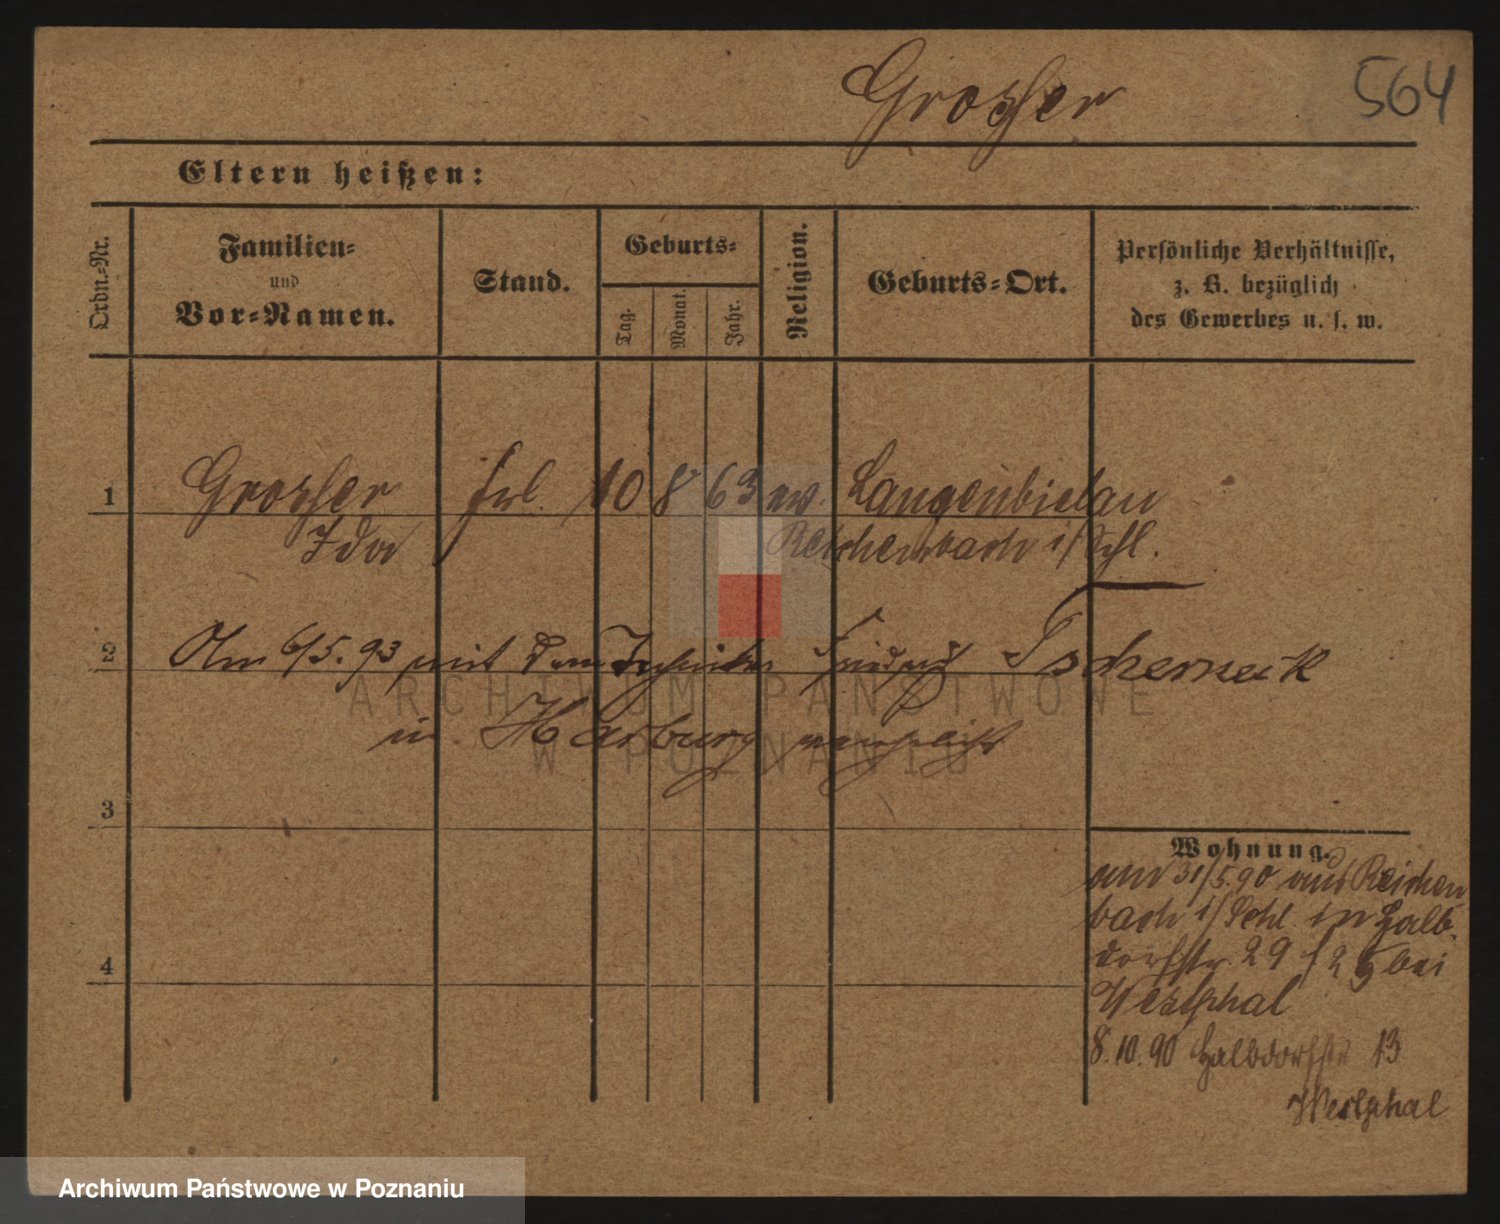 Grosser 564
Eltern heißen:
Ordn.-Nr.
Familien-
und
Vor-Namen.
Stand.
Geburts-
Tag.
Monat.
Jahr.
Religion.
Geburts-Ort.
Persönliche Verhältnisse,
z. B. bezüglich
des Gewerbes u. s. w.
1 Grosser frl. 10 8 63 ev. Langenbielau
Ida Reichenbach i/Schl.
2 Am 6/5.93 mit dem Techniker Friedrich Tscherneck
in Harburg verehelicht
3
4
Wohnung.
am 31/5.90 aus Reichen
bach i/Schl. in Halb-
dorfstr. 29 bei
Westphal
8.10.90 Halbdorfstr 13
Westphal
ARCHIWUM PAŃSTWOWE
W POZNANIU
Archiwum Państwowe w Poznaniu